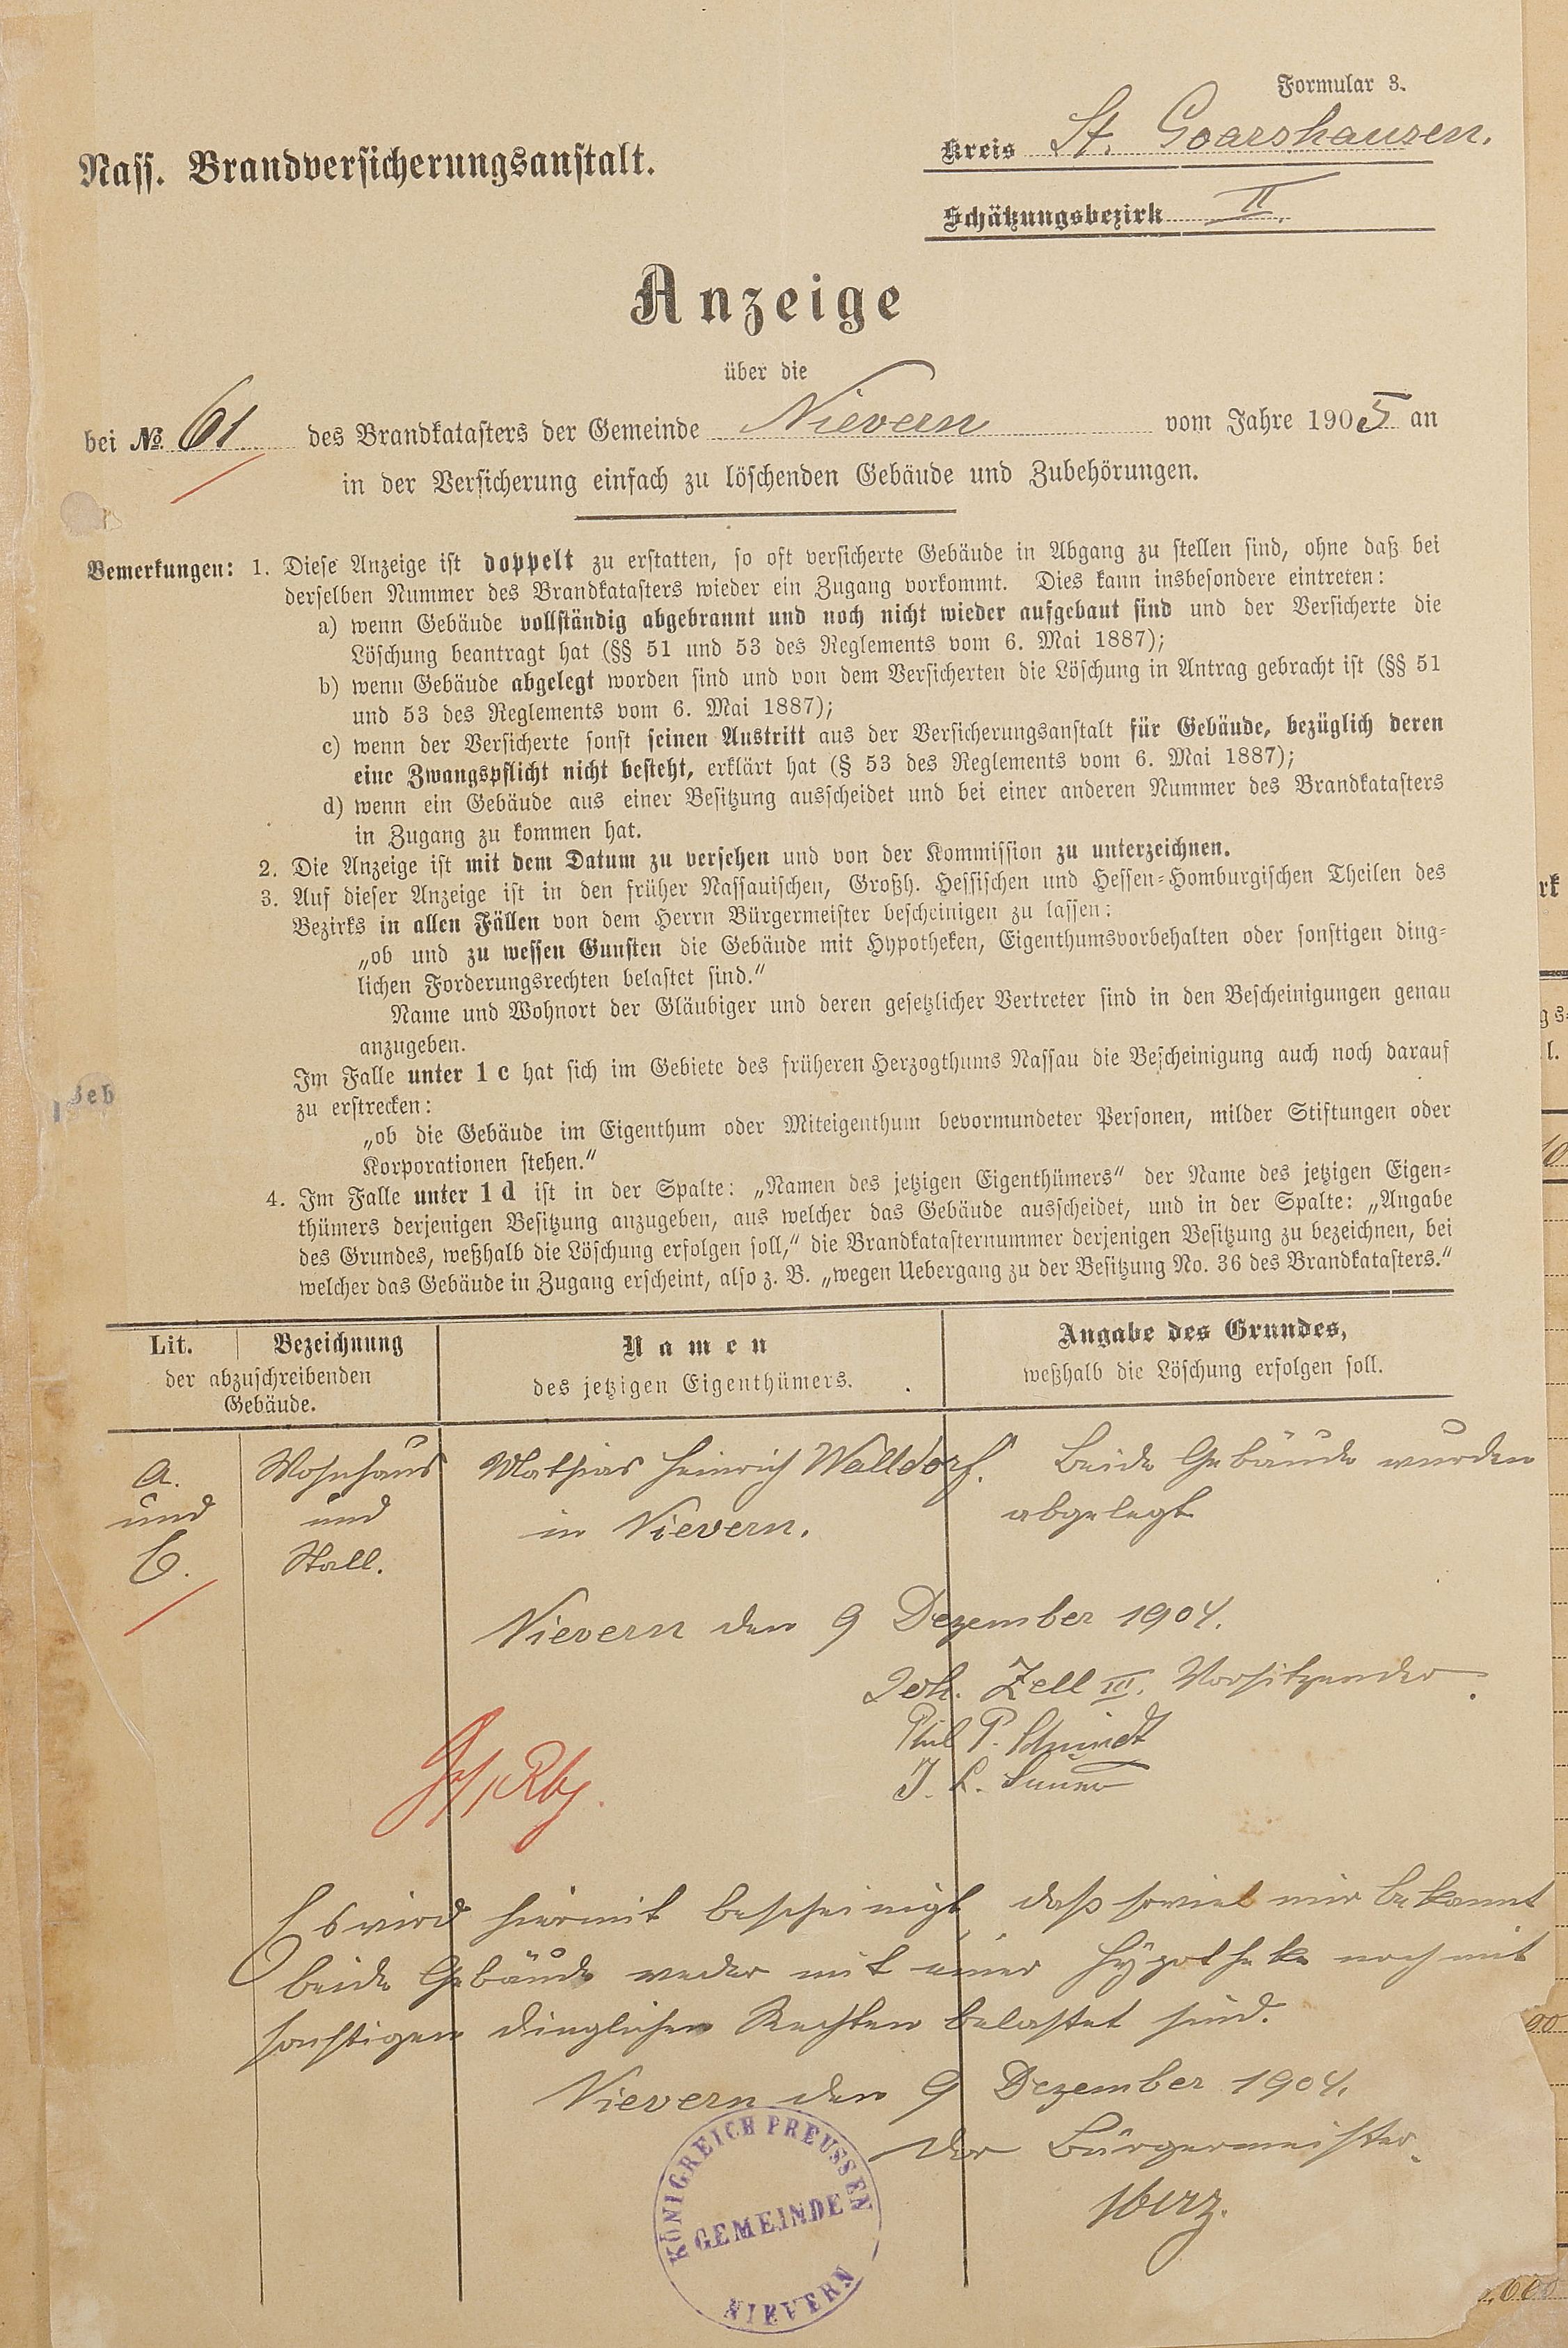 Formular 3.
Nass. Brandversicherungsanstalt.
Kreis St. Goarshausen.
Schätzungsbezirk II.
Anzeige
über die
bei No. 61 des Brandkatasters der Gemeinde Nievern vom Jahre 1905 an
in der Versicherung einfach zu löschenden Gebäude und Zubehörungen.
Bemerkungen: 1. Diese Anzeige ist doppelt zu erstatten, so oft versicherte Gebäude in Abgang zu stellen sind, ohne daß bei
derselben Nummer des Brandkatasters wieder ein Zugang vorkommt. Dies kann insbesondere eintreten:
a) wenn Gebäude vollständig abgebrannt und noch nicht wieder aufgebaut sind und der Versicherte die
Löschung beantragt hat (§§ 51 und 53 des Reglements vom 6. Mai 1887);
b) wenn Gebäude abgelegt worden sind und von dem Versicherten die Löschung in Antrag gebracht ist (§§ 51
und 53 des Reglements vom 6. Mai 1887);
c) wenn der Versicherte sonst seinen Austritt aus der Versicherungsanstalt für Gebäude, bezüglich deren
eine Zwangspflicht nicht besteht, erklärt hat (§ 53 des Reglements vom 6. Mai 1887);
d) wenn ein Gebäude aus einer Besitzung ausscheidet und bei einer anderen Nummer des Brandkatasters
in Zugang zu kommen hat.
2. Die Anzeige ist mit dem Datum zu versehen und von der Kommission zu unterzeichnen.
3. Auf dieser Anzeige ist in den früher Nassauischen, Großh. Hessischen und Hessen-Homburgischen Theilen des
Bezirks in allen Fällen von dem Herrn Bürgermeister bescheinigen zu lassen:
„ob und zu wessen Gunsten die Gebäude mit Hypotheken, Eigenthumsvorbehalten oder sonstigen ding-
lichen Forderungsrechten belastet sind.“
Name und Wohnort der Gläubiger und deren gesetzlicher Vertreter sind in den Bescheinigungen genau
anzugeben.
Im Falle unter 1 c hat sich im Gebiete des früheren Herzogthums Nassau die Bescheinigung auch noch darauf
zu erstrecken:
„ob die Gebäude im Eigenthum oder Miteigenthum bevormundeter Personen, milder Stiftungen oder
Korporationen stehen.“
4. Im Falle unter 1 d ist in der Spalte: „Namen des jetzigen Eigenthümers“ der Name des jetzigen Eigen-
thümers derjenigen Besitzung anzugeben, aus welcher das Gebäude ausscheidet, und in der Spalte: „Angabe
des Grundes, weßhalb die Löschung erfolgen soll,“ die Brandkatasternummer derjenigen Besitzung zu bezeichnen, bei
welcher das Gebäude in Zugang erscheint, also z. B. „wegen Uebergang zu der Besitzung No. 36 des Brandkatasters.“
Lit. Bezeichnung
der abzuschreibenden
Gebäude.
Namen
des jetzigen Eigenthümers.
Angabe des Grundes,
weßhalb die Löschung erfolgen soll.
a. Wohnhaus Mathias Heinrich Walldorf. Beide Gebäude wurden
und und in Nievern. abgelegt
b. Stall.
Nievern den 9 Dezember 1904.
Joh. Zell III. Vorsitzender.
Phil P. Schmidt
Es wird hiermit bescheinigt, daß soviel mir bekannt
beide Gebäude weder mit einer Hypotheke noch mit
sonstigen dinglichen Rechten belastet sind.
Nievern den 9 Dezember 1904.
Der Bürgermeister.
KÖNIGREICH PREUSSEN
GEMEINDE
NIEVERN